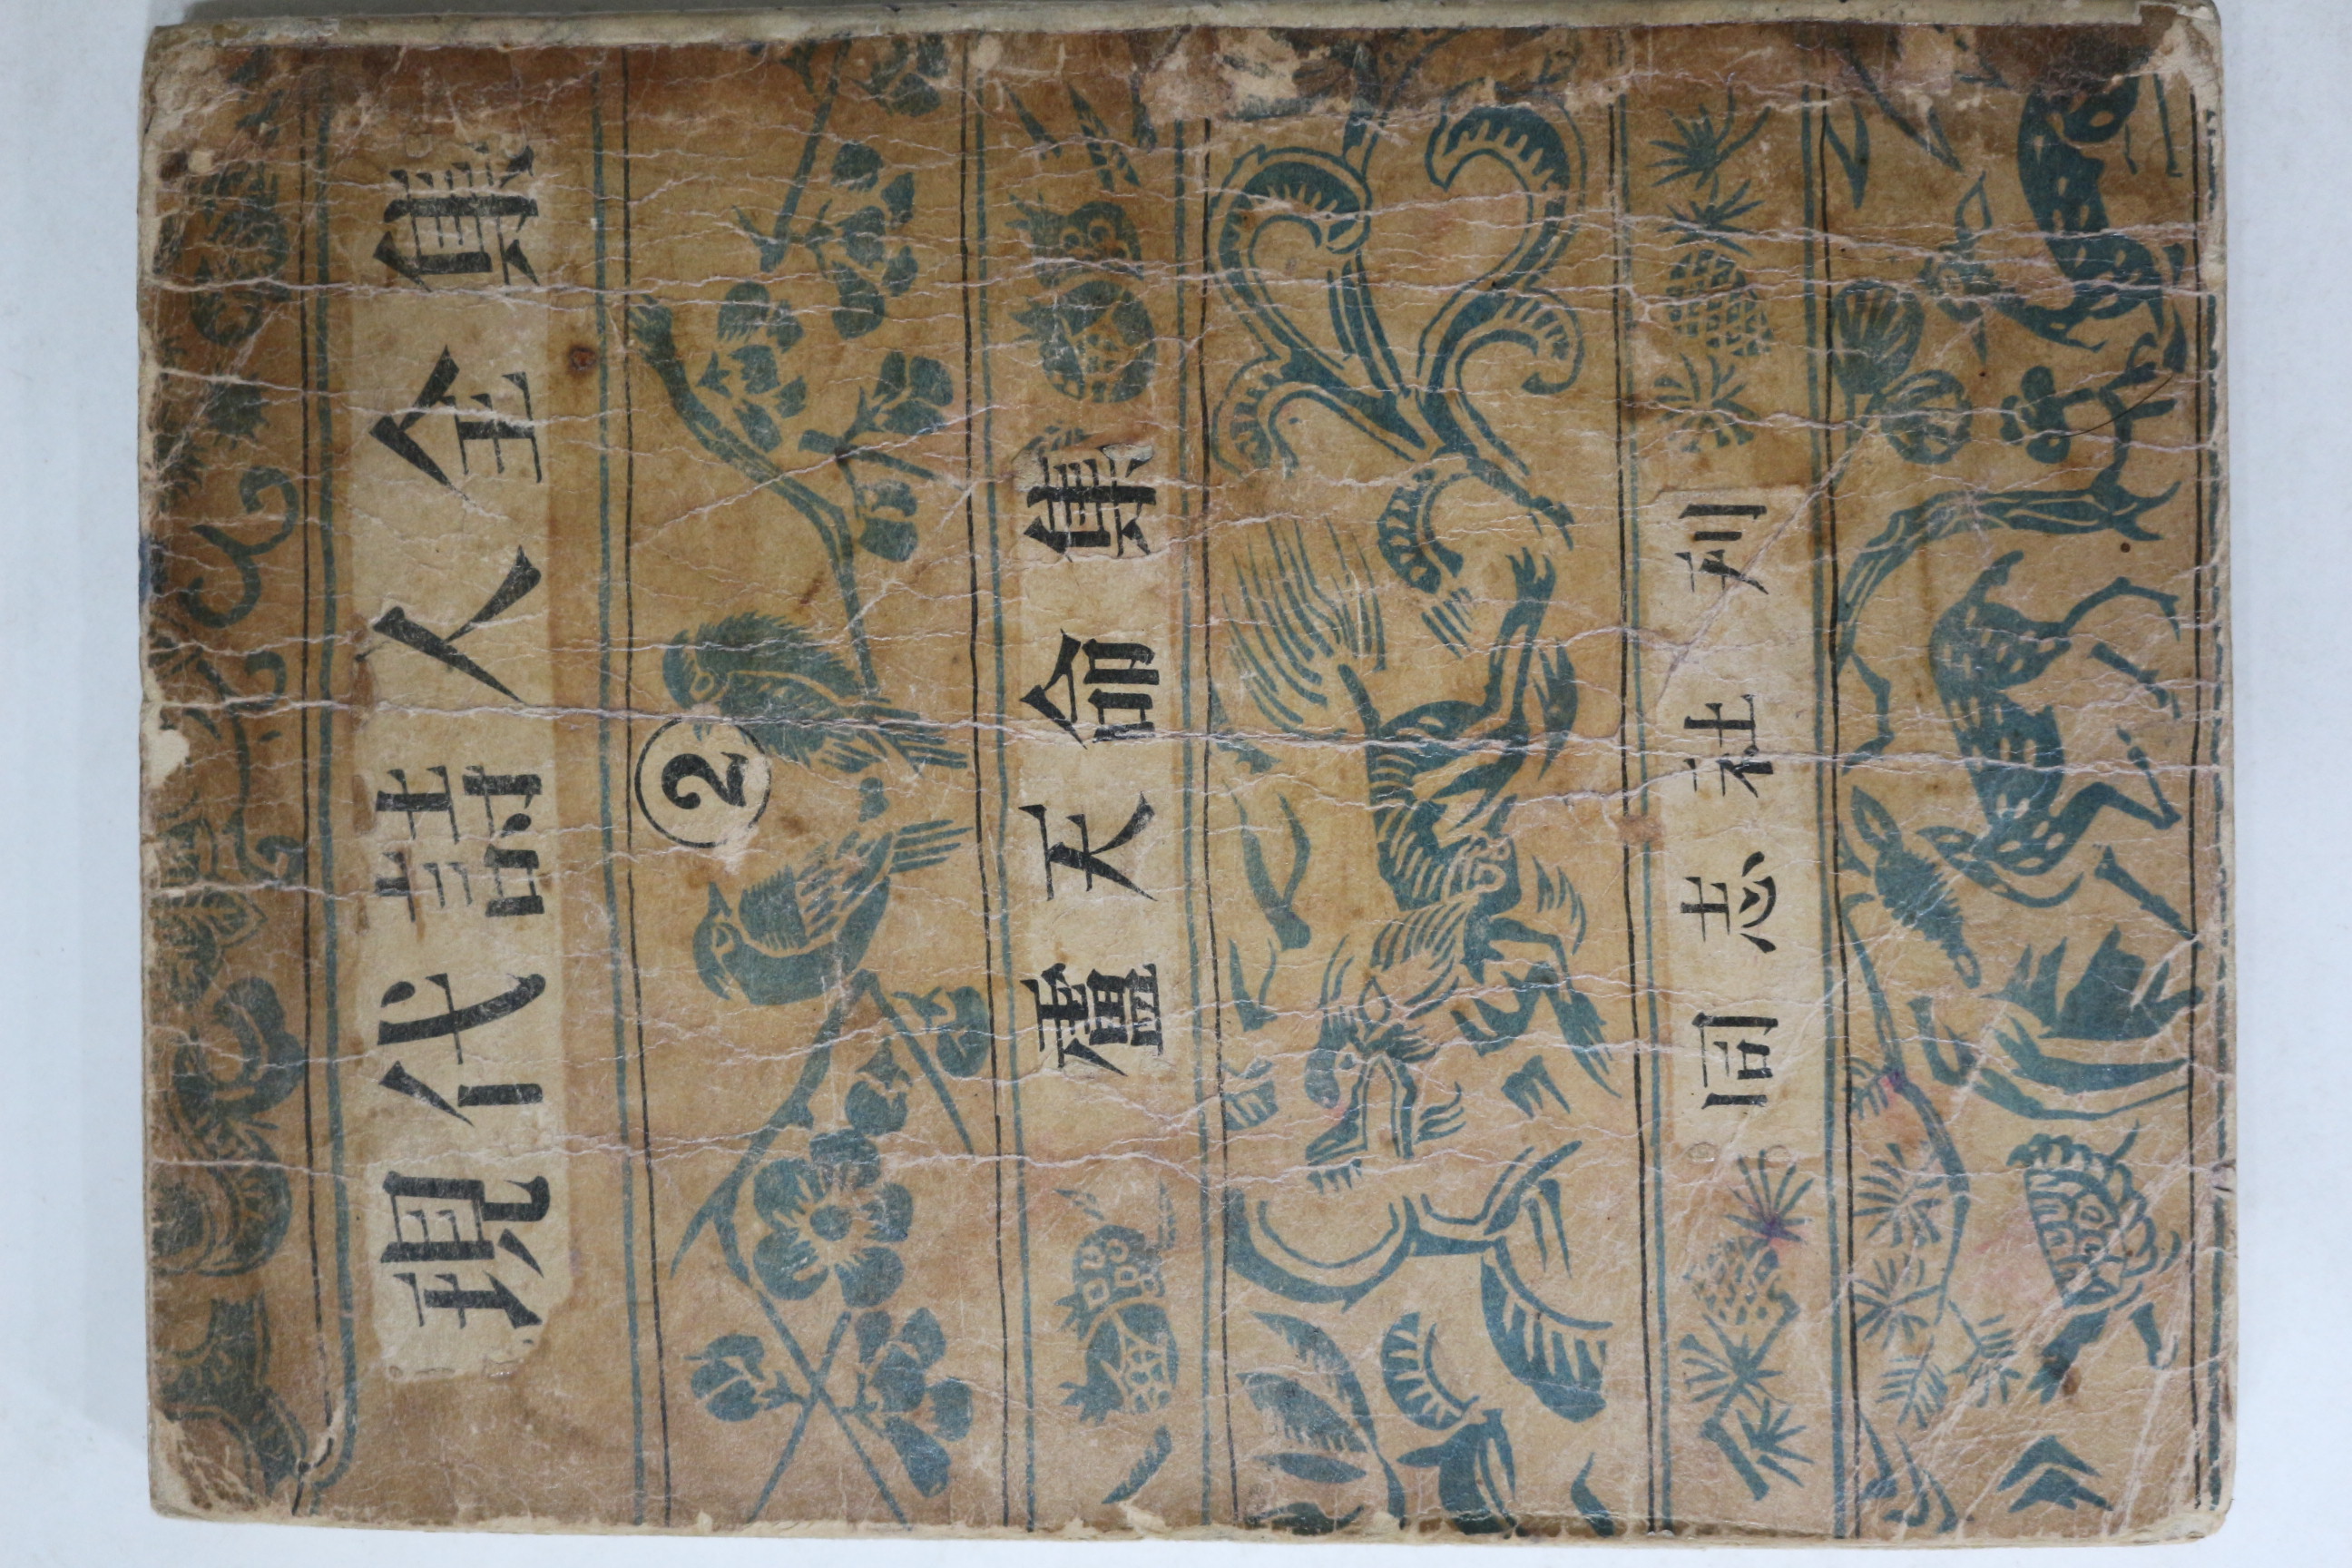 現代詩人全集
②
盧天命集
同志社刊